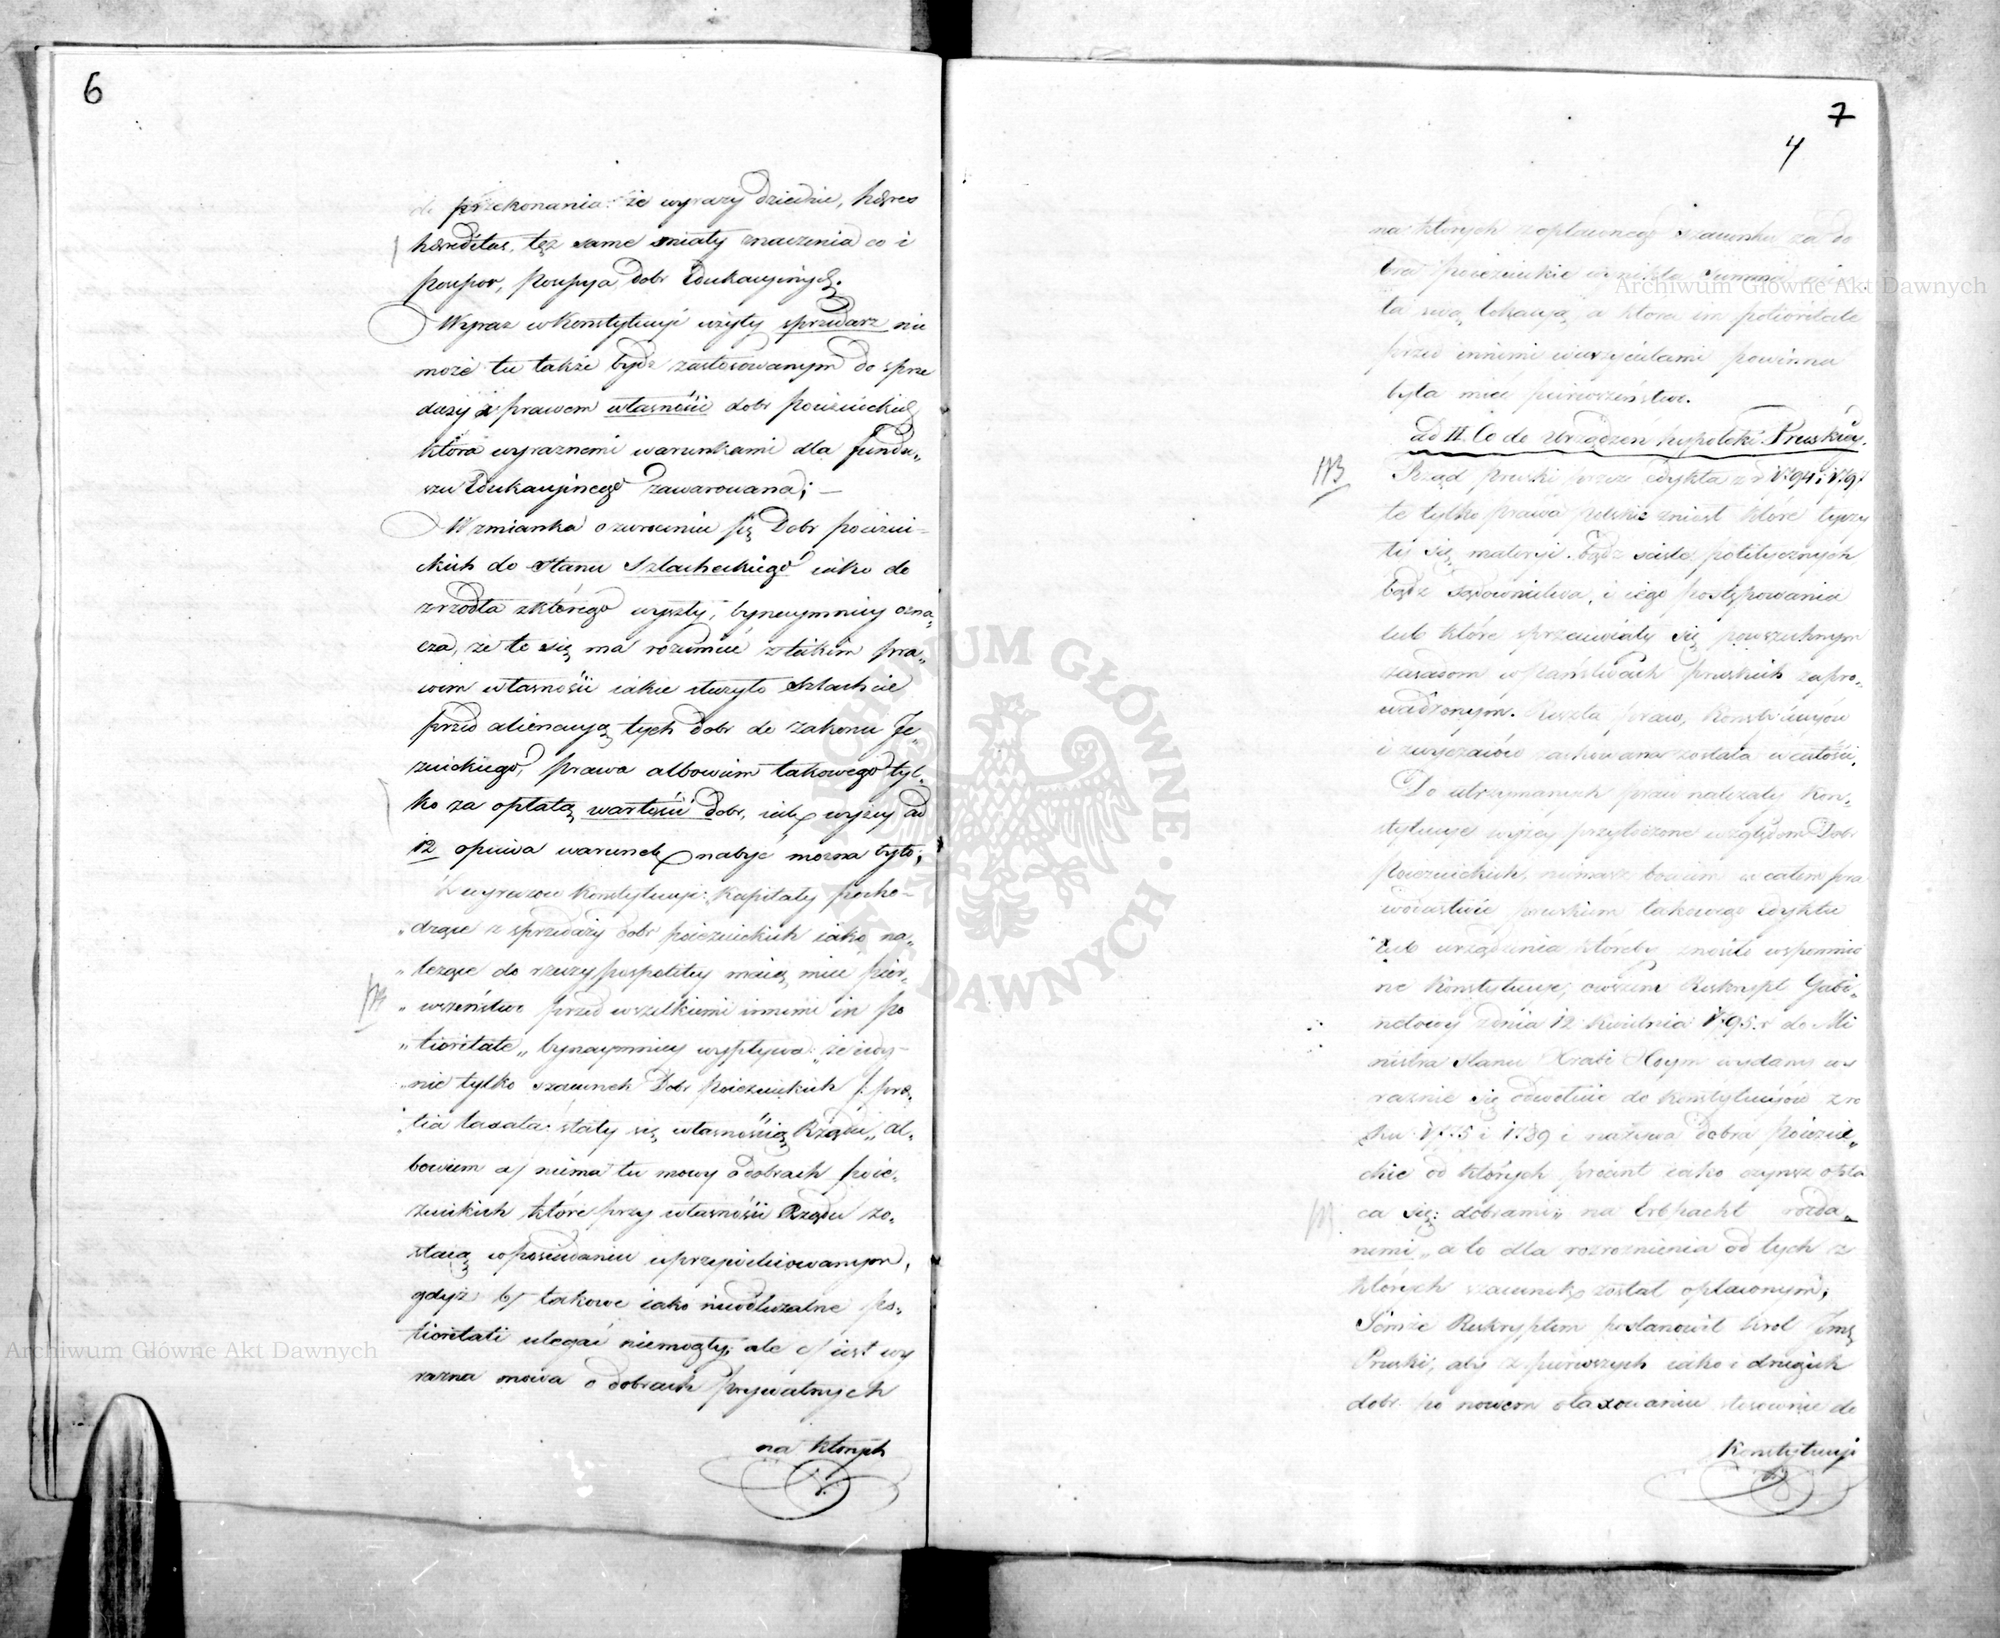 6
do przekonania: że wyrazy dziedzic, hæres
hæreditas, też same miały znaczenia co i
possessor, possessya dobr Edukacyinych.
Wyraz w Konstytucyi użyty sprzedarz nie
może tu także bydź zastosowanym do sprze
daży z prawem własności dobr pojezuickich
która wyraznemi warunkami dla fundu„
szu Edukacyinego zawarowana; —
Wzmianka o zwroceniu się Dobr pojezui-
ckich do stanu Szlacheckiego iako do
zrzodła z którego wyszły, bynaymniey ozna„
cza, że to się ma rozumieć z takim pra„
wem własności iakie służyło Szlachcie
przed alienacyą tych dobr do zakonu Je„
zuickiego, prawa albowiem takowego tyl„
ko za opłatą wartości dobr, iak wyżey ad
12 opiewa warunek nabyć można było;
Z wyrazow Konstytucyi: „Kapitały pocho-
„dzące z sprzedaży dobr pojezuickich iako na„
„leżące do rzeczypospolitey maią mieć pier„
NB „wszeństwo przed wszelkiemi innemi in po
„tioritate„ bynaymniey wypływa: że iedy-
nie tylko szacunek Dobr Pojezuickich /: pre„
tia taxata: stały się własnością Rządu„ al„
bowiem a/ niema tu mowy o dobrach poie„
zuickich które przy własności Rządu zo„
staią w posiadaniu uprzywileiowanym,
gdyż b/ takowe iako niewdłużalne po„
tioritati ulegać niemogły; ale c/ iest wy
razna mowa o dobrach prywatnych
na których
7
4
na których z opłaconego szacunku za do
bra pojezuickie wynikła Summa mia„
ła swą lokacyą, a ktora in potioritate
przed innemi wierzycielami powinna
była mieć pierwszeństwo.
ad II. Co do Urządzeń hypoteki Pruskiey.
NB Rząd pruski przez edykta z r. 1794 i 1797
te tylko prawa polskie zniosł które tyczy
ły się materyi bądź sciśle politycznych
bądź Sądownictwa, i iego postępowania
lub które sprzeciwiały się powszechnym
zasadom w państwach pruskich zapro„
wadzonym. Reszta praw, Konstytucyów
i zwyczaiów zachowana została w całości.
Do utrzymanych praw należały Kon„
stytucye wyżey przytoczone względem Dobr
Pojezuickich, niemasz bowiem w całem pra
wodastwie pruskiem takowego edyktu
lub urządzenia któreby znosiło wspomnio
ne Konstytucye; owszem Reskrypt Gabi„
netowy z dnia 12 Kwietnia 1795 r. do Mi
nistra stanu Hrabi Hoym wydany wy
raznie się odwołuie do Konstytucyów z ro
ku 1775 i 1789 i nazywa dobra pojezui„
ckie od których procent iako czynsz opła
ca się: dobrami„ na Erbpacht rozda„
nemi„ a to dla rozroznienia od tych z
których szacunek został opłaconym;
Tymże Reskryptem postanowił Krol Jmć
Pruski, aby z pierwszych iako i drugich
dobr po nowem otaxowaniu stosownie do
Konstytucyi